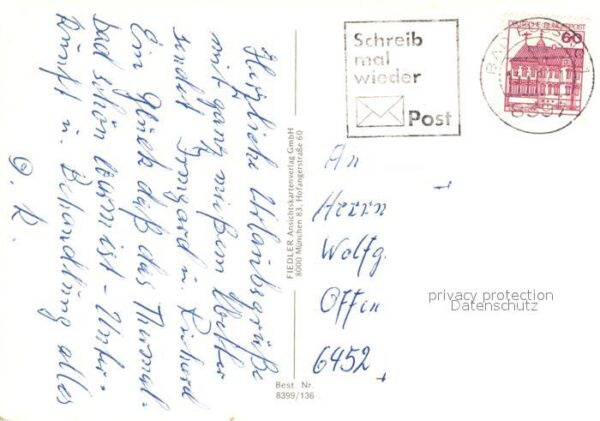 Herzliche Urlaubsgrüße
mit ganz miesem Wetter
sendet Irmgard u. Richard
Ein Glück daß das Thermal-
bad schön warm ist - Unter-
kunft u. Behandlung alles
O. K.
FIEDLER Ansichtskartenverlag GmbH
8000 München 83, Hofangerstraße 60
Best. Nr.
8399/136
Schreib
mal
wieder
Post
DEUTSCHE BUNDESPOST
60
An
Herrn
Wolfg.
Offen
6452
privacy protection
Datenschutz